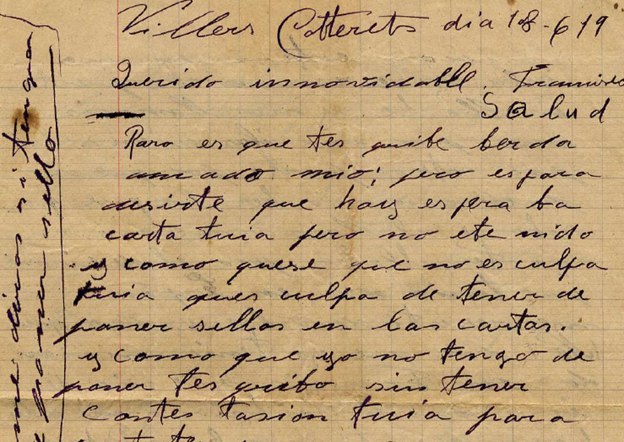 Villers Cotterets dia 18-619
Querido innovidable Francisco
Salud
Raro es que tes quibe berda
amado mio; pero es para
desirte que haiz espera ba
carta tuia pero no ete nido
y como quese que no es culpa
tuia ques culpa de tener de
poner sellos en las cartas.
y como que yo no tengo de
poner tes quibo sin tener
Contes tasion tuia para
me diras si tengo
poner sello